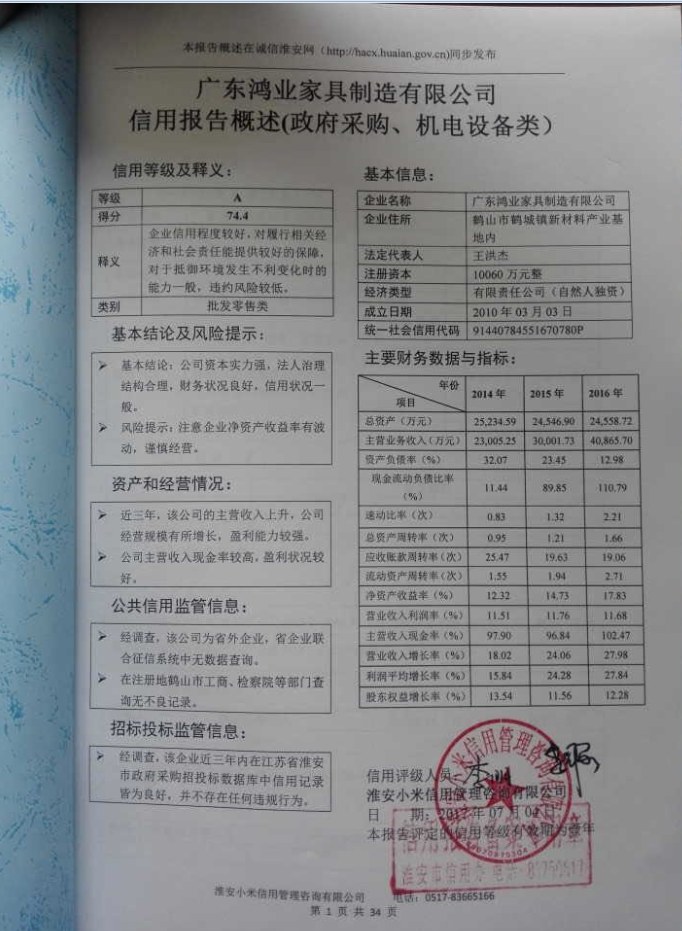 本报告概述在诚信淮安网（http://hacx.huaian.gov.cn)同步发布
广东鸿业家具制造有限公司
信用报告概述(政府采购、机电设备类）
信用等级及释义：
等级 A
得分 74.4
释义 企业信用程度较好，对履行相关经
济和社会责任能提供较好的保障，
对于抵御环境发生不利变化时的
能力一般，违约风险较低。
类别 批发零售类
基本结论及风险提示：
➤ 基本结论：公司资本实力强，法人治理
结构合理，财务状况良好，信用状况一
般。
➤ 风险提示：注意企业净资产收益率有波
动，谨慎经营。
资产和经营情况：
➤ 近三年，该公司的主营收入上升，公司
经营规模有所增长，盈利能力较强。
➤ 公司主营收入现金率较高，盈利状况较
好。
公共信用监管信息：
➤ 经调查，该公司为省外企业，省企业联
合征信系统中无数据查询。
➤ 在注册地鹤山市工商、检察院等部门查
询无不良记录。
招标投标监管信息：
➤ 经调查，该企业近三年内在江苏省淮安
市政府采购招投标数据库中信用记录
皆为良好，并不存在任何违规行为。
基本信息：
企业名称 广东鸿业家具制造有限公司
企业住所 鹤山市鹤城镇新材料产业基
地内
法定代表人 王洪杰
注册资本 10060 万元整
经济类型 有限责任公司（自然人独资）
成立日期 2010 年 03 月 03 日
统一社会信用代码 91440784551670780P
主要财务数据与指标：
年份 项目 2014 年 2015 年 2016 年
总资产（万元） 25,234.59 24,546.90 24,558.72
主营业务收入（万元） 23,005.25 30,001.73 40,865.70
资产负债率（%） 32.07 23.45 12.98
现金流动负债比率
（%） 11.44 89.85 110.79
速动比率（次） 0.83 1.32 2.21
总资产周转率（次） 0.95 1.21 1.66
应收账款周转率（次） 25.47 19.63 19.06
流动资产周转率（次） 1.55 1.94 2.71
净资产收益率（%） 12.32 14.73 17.83
营业收入利润率（%） 11.51 11.76 11.68
主营收入现金率（%） 97.90 96.84 102.47
营业收入增长率（%） 18.02 24.06 27.98
利润平均增长率（%） 15.84 24.28 27.84
股东权益增长率（%） 13.54 11.56 12.28
信用评级人员：
淮安小米信用管理咨询有限公司
日 期：2017 年 07 月
本报告评定的信用等级有效期为壹年
淮安小米信用管理咨询有限公司 电话：0517-83665166
第 1 页 共 34 页